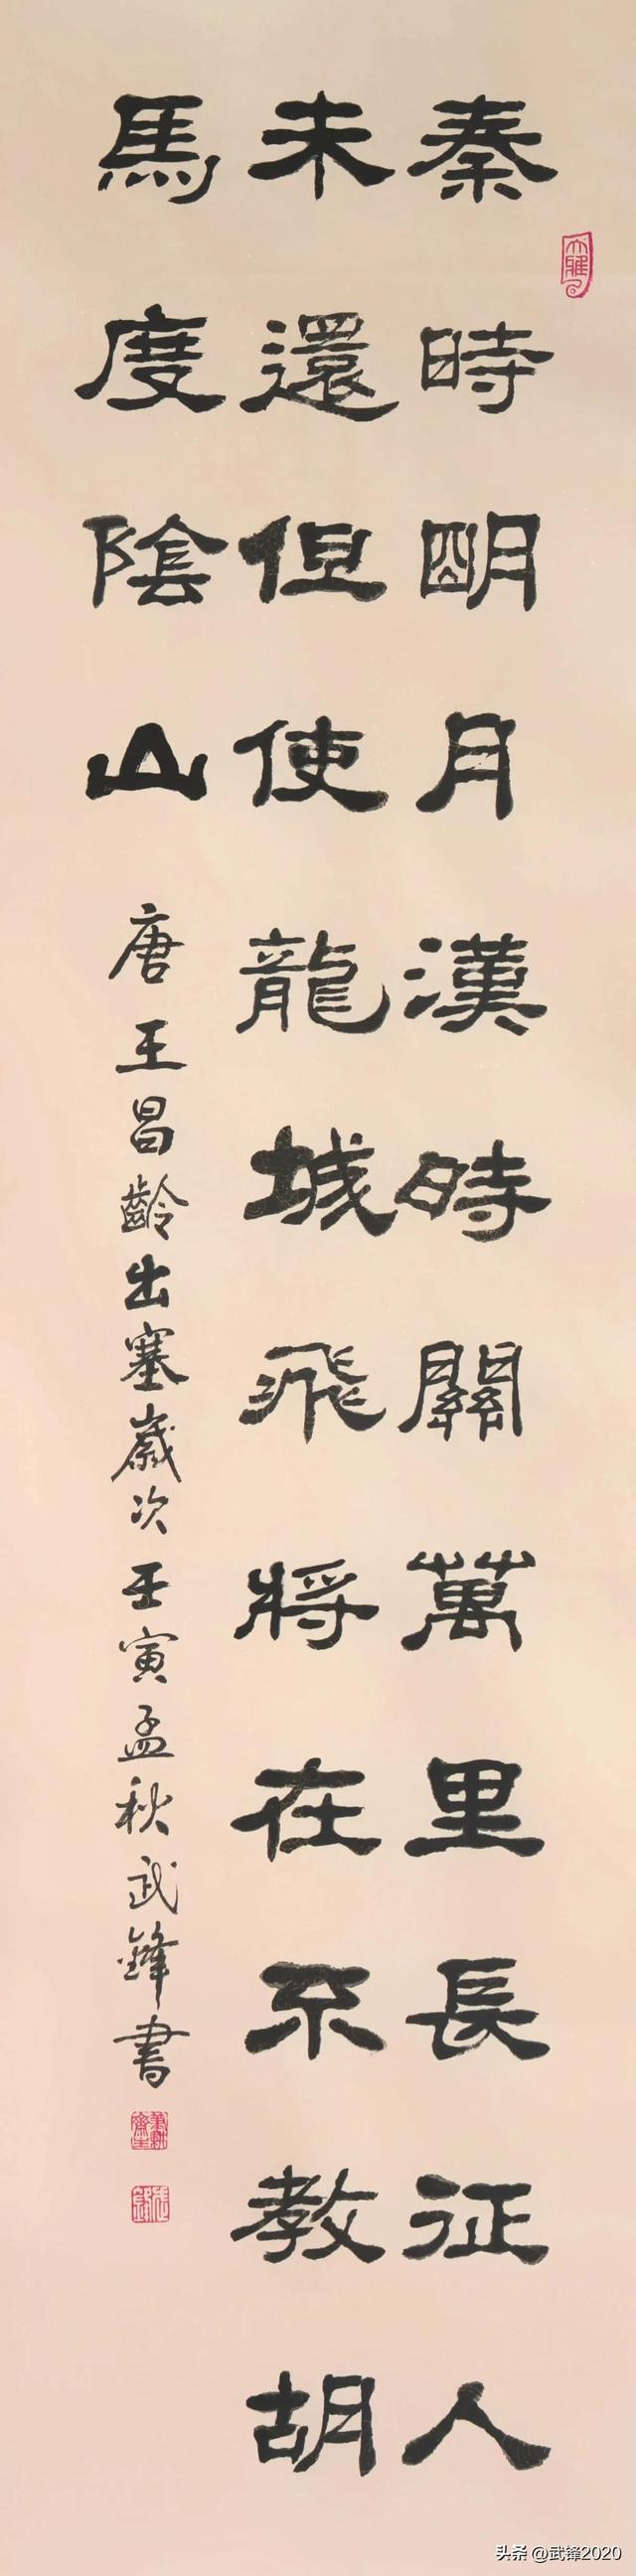 秦時明月漢時關萬里長征人
未還但使龍城飛將在不教胡
馬度陰山
唐王昌齡出塞歲次壬寅孟秋武鋒書
头条 @武锋2020